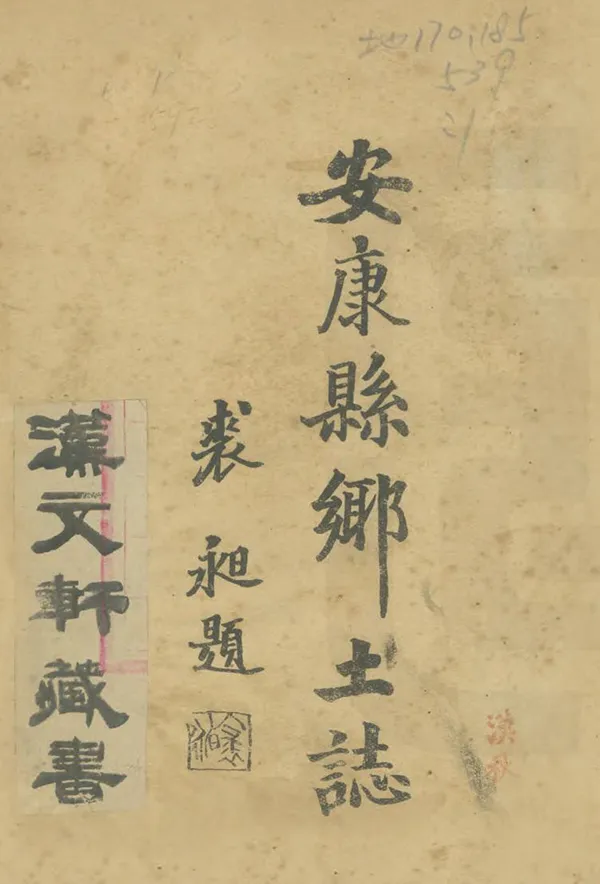 地170.185
539
21
安康縣鄉土誌
裘昶題
漢文軒藏書